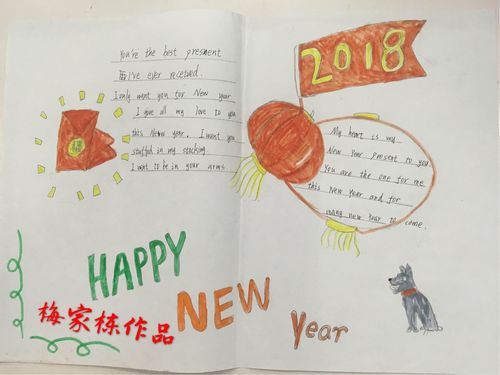 You're the best present
I've ever received.
I only want you for New year
I give all my love to you
this New year. I want you
stuffed in my stocking
I want to be in your arms.
2018
My heart is my
New Year present to you
You are the one for me
this New Year and for
many new Year to come.
HAPPY
NEW
Year
梅家栋作品